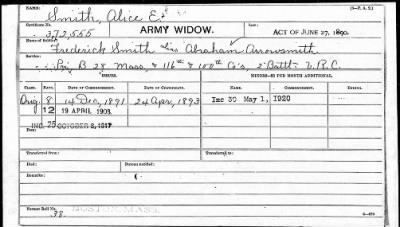 (3-P. A. S.)
Smith, Alice E.
Certificate No.
372,555
ARMY WIDOW.
ACT OF JUNE 27, 1890.
Name of Soldier:
Frederick Smith Abraham Arrowsmith
Service:
Pri. B 28 Mass, & 116th & 100th Co's 2" Batt. V. R. C.
ISSUES.
MINORS—$2 PER MONTH ADDITIONAL.
CLASS. RATE. DATE OF COMMENCEMENT. DATE OF CERTIFICATE. NAME. COMMENCEMENT.
Orig. 8 14 Dec, 1891 24 Apr, 1893 Inc 30 May 1, 1920
12 19 APRIL 1908
INC. 25 OCTOBER 6, 1917
Transferred from: Transferred to:
Died: Bureau notified:
Remarks:
Former Roll No. 38
BOSTON, MASS.